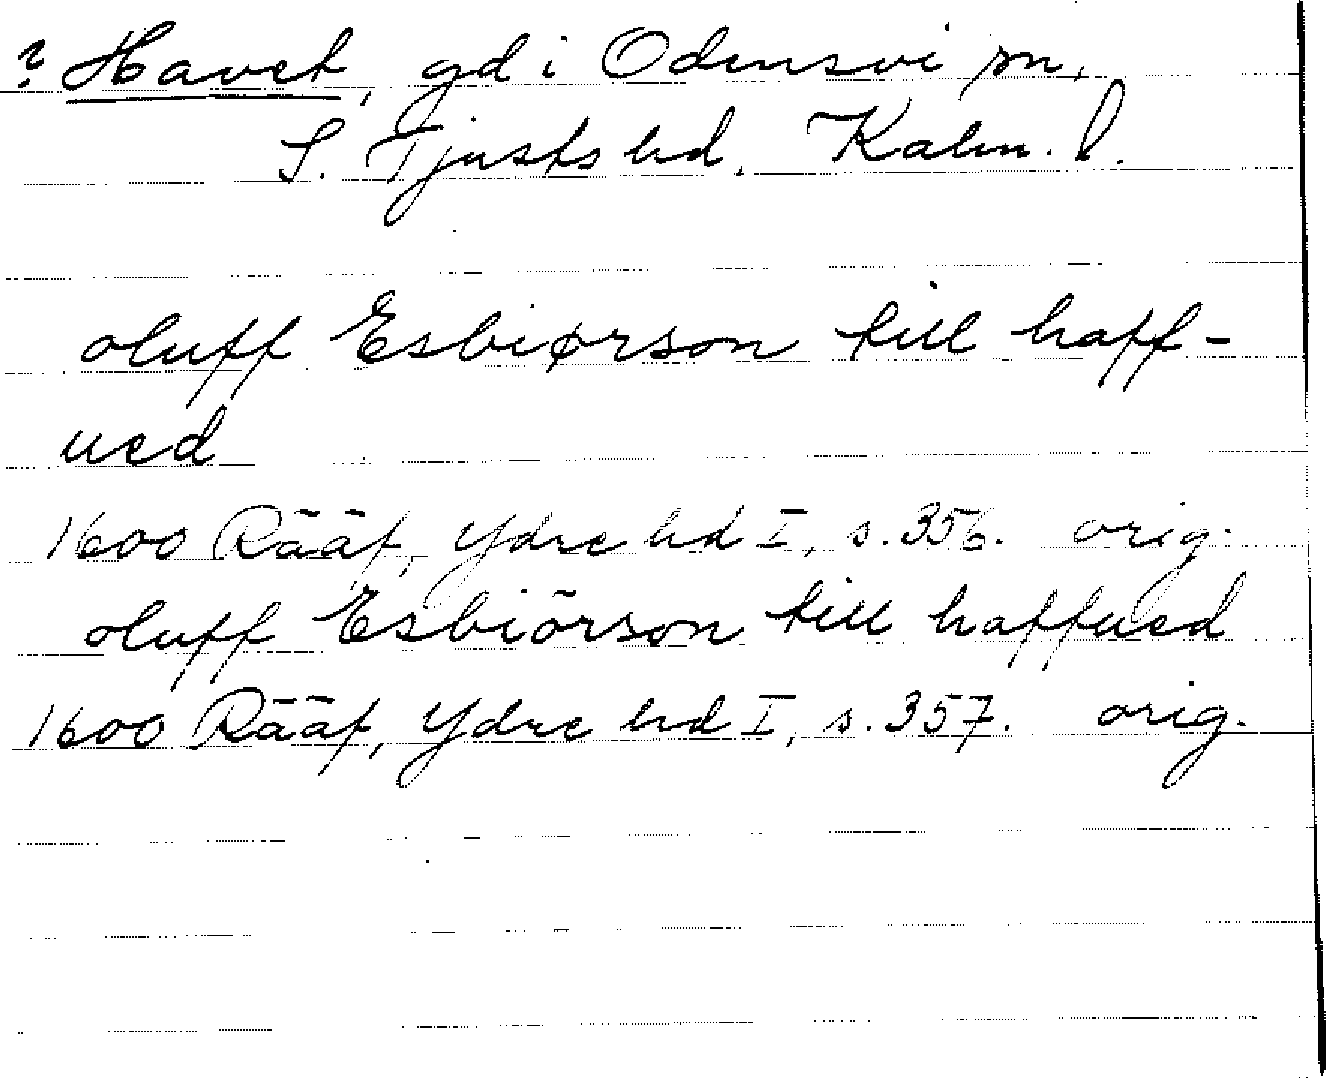 ? Havet, gd i Odensvi sn,
S. Tjusts hd, Kalm. l.
oluff Esbiørson till haff-
ued
1600 Rääf, Ydre hd I, s. 356. orig.
oluff Esbiörson till haffued
1600 Rääf, Ydre hd I, s. 357. orig.